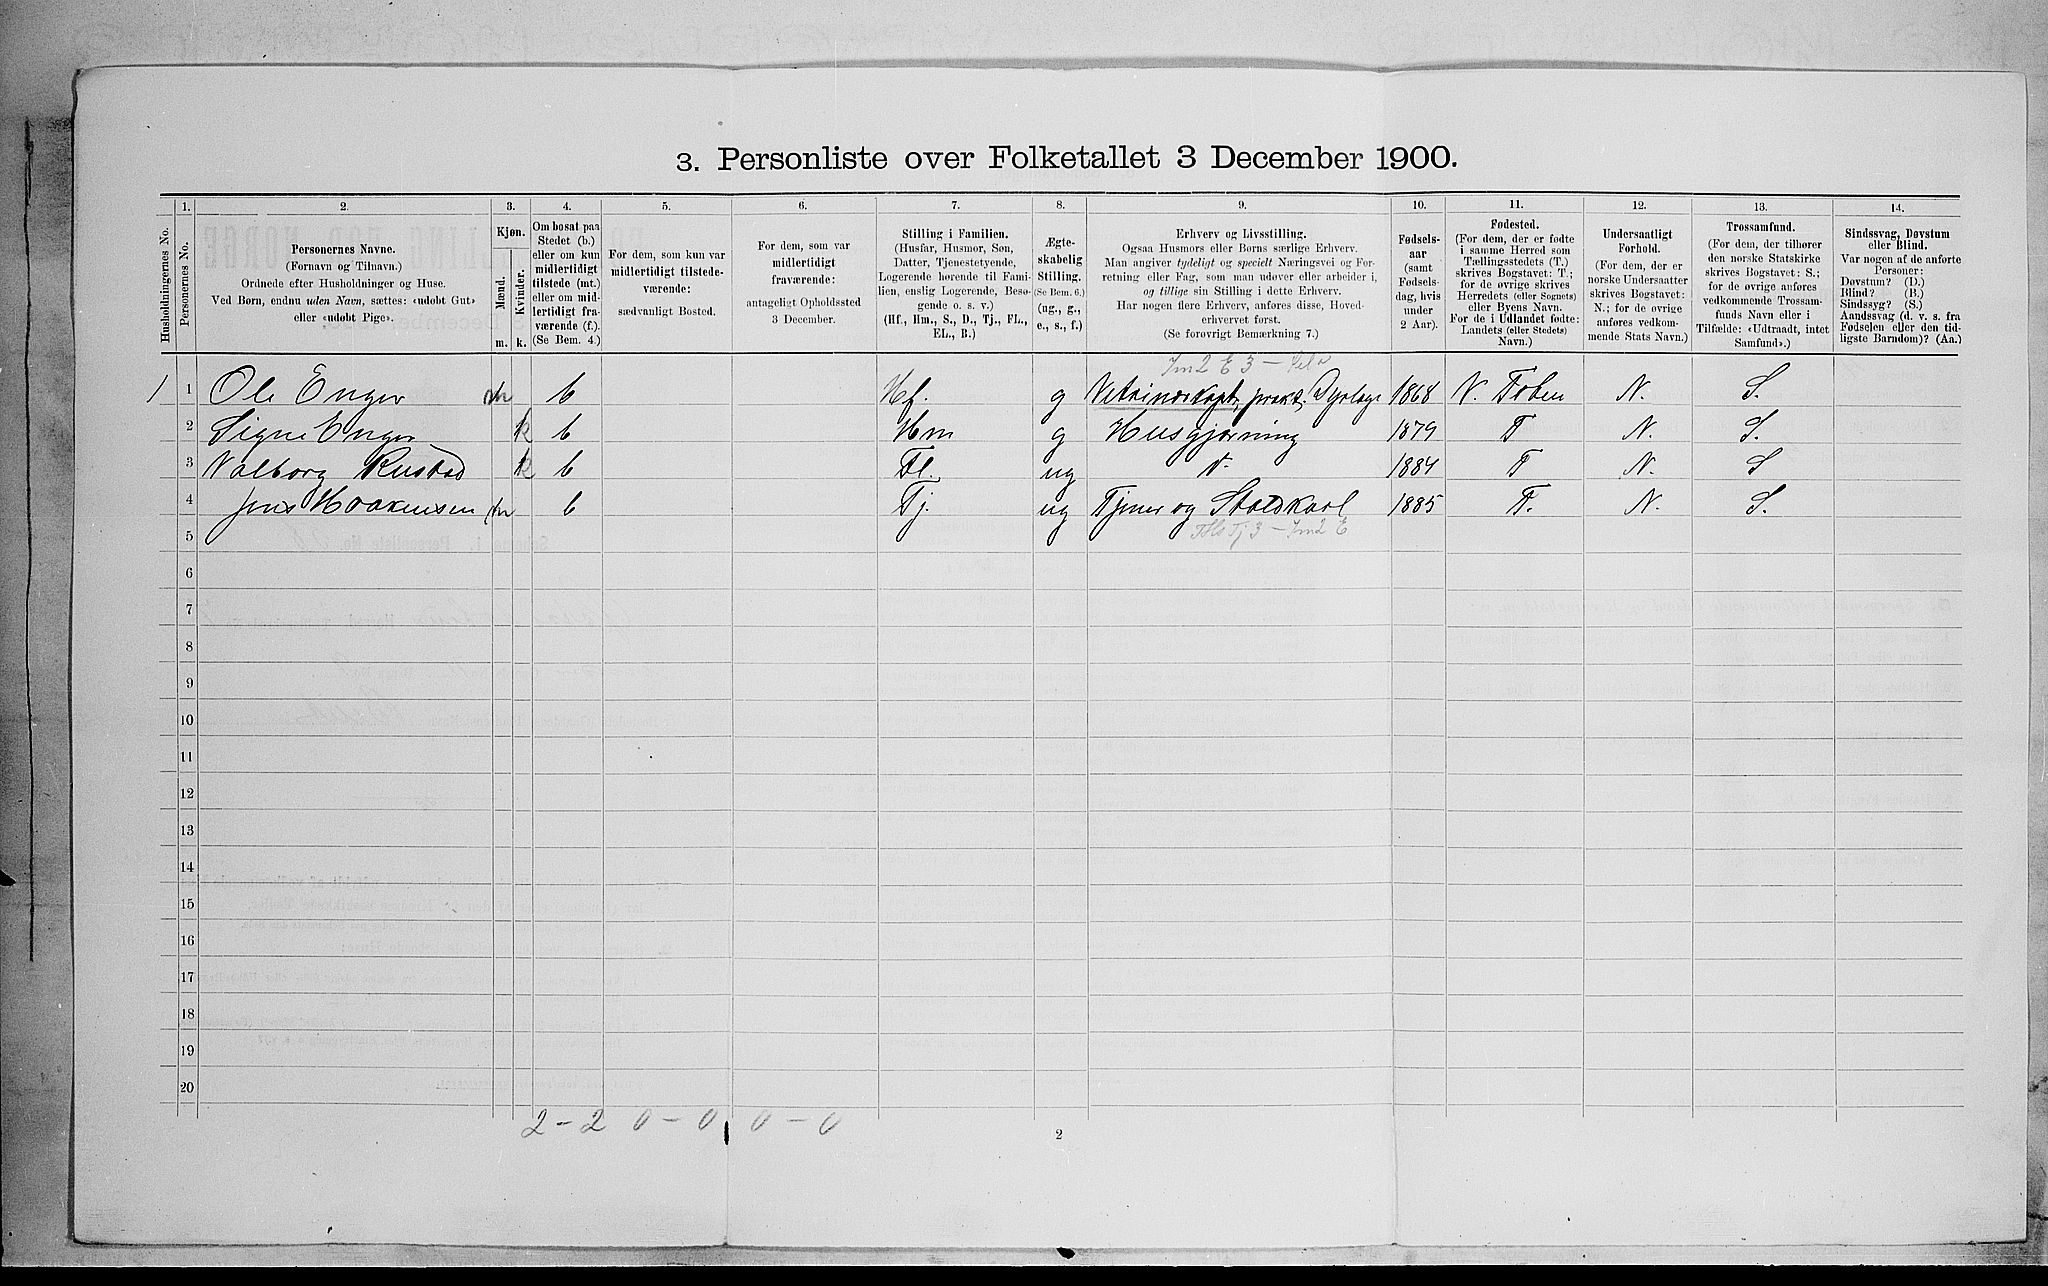 3. Personliste over Folketallet 3 December 1900.
1. 2. 3. 4. 5. 6. 7. 8. 9. 10. 11. 12. 13. 14.
Husholdningernes No.
Personernes No.
Personernes Navne.
(Fornavn og Tilnavn.)
Ordnede efter Husholdninger og Huse.
Ved Børn, endnu uden Navn, sættes: «udøbt Gut»
eller «udøbt Pige».
Kjøn.
Mænd.
Kvinder.
m. k.
Om bosat paa
Stedet (b.)
eller om kun
midlertidigt
tilstede (mt.)
eller om mid-
lertidigt fra-
værende (f.).
(Se Bem. 4.)
For dem, som kun var
midlertidigt tilstede-
værende:
sædvanligt Bosted.
For dem, som var
midlertidigt
fraværende:
antageligt Opholdssted
3 December.
Stilling i Familien.
(Husfar, Husmor, Søn,
Datter, Tjenestetyende,
Logerende hørende til Fami-
lien, enslig Logerende, Besø-
gende o. s. v.)
(Hf., Hm., S., D., Tj., FL.,
EL., B.)
Ægte-
skabelig
Stilling.
(Se Bem. 6.)
(ug., g.,
e., s., f.)
Erhverv og Livsstilling.
Ogsaa Husmors eller Børns særlige Erhverv.
Man angiver tydeligt og specielt Næringsvei og For-
retning eller Fag, som man udøver eller arbeider i,
og tillige sin Stilling i dette Erhverv.
Har nogen flere Erhverv, anføres disse, Hoved-
erhvervet først.
(Se forøvrigt Bemærkning 7.)
Fødsels-
aar
(samt
Fødsels-
dag, hvis
under
2 Aar).
Fødested.
(For dem, der er fødte
i samme Herred som
Tællingsstedets (T.)
skrives Bogstavet: T.;
for de øvrige skrives
Herredets (eller Sognets)
eller Byens Navn.
For de i Udlandet fødte:
Landets (eller Stedets)
Navn.)
Undersaatligt
Forhold.
(For dem, der er
norske Undersaatter
skrives Bogstavet:
N.; for de øvrige
anføres vedkom-
mende Stats Navn.)
Trossamfund.
(For dem, der tilhører
den norske Statskirke
skrives Bogstavet: S.;
for de øvrige anføres
vedkommende Trossam-
funds Navn eller i
Tilfælde: «Udtraadt, intet
Samfund».)
Sindssvag, Døvstum
eller Blind.
Var nogen af de anførte
Personer:
Døvstum? (D.)
Blind? (B.)
Sindssyg? (S.)
Aandssvag (d. v. s. fra
Fødselen eller den tid-
ligste Barndom)? (Aa.)
Im 2 E 3 —
1 1 Ole Enger m b Hf. g prakt. Dyrlæge 1868 N. N. S.
2 Signe Enger k b Hm g Husgjerning 1879 T N. S.
3 Valborg Rustad k b Fl. ug 1884 T N. S
4 Jens Haakensen m b Tj. ug Tjener og Staldkarl 1885 T. N. S.
5 Tj 3 — Im2 E
6
7
8
9
10
11
12
13
14
15
16
17
18
19
20
2 – 2 0 – 0 0 – 0
2